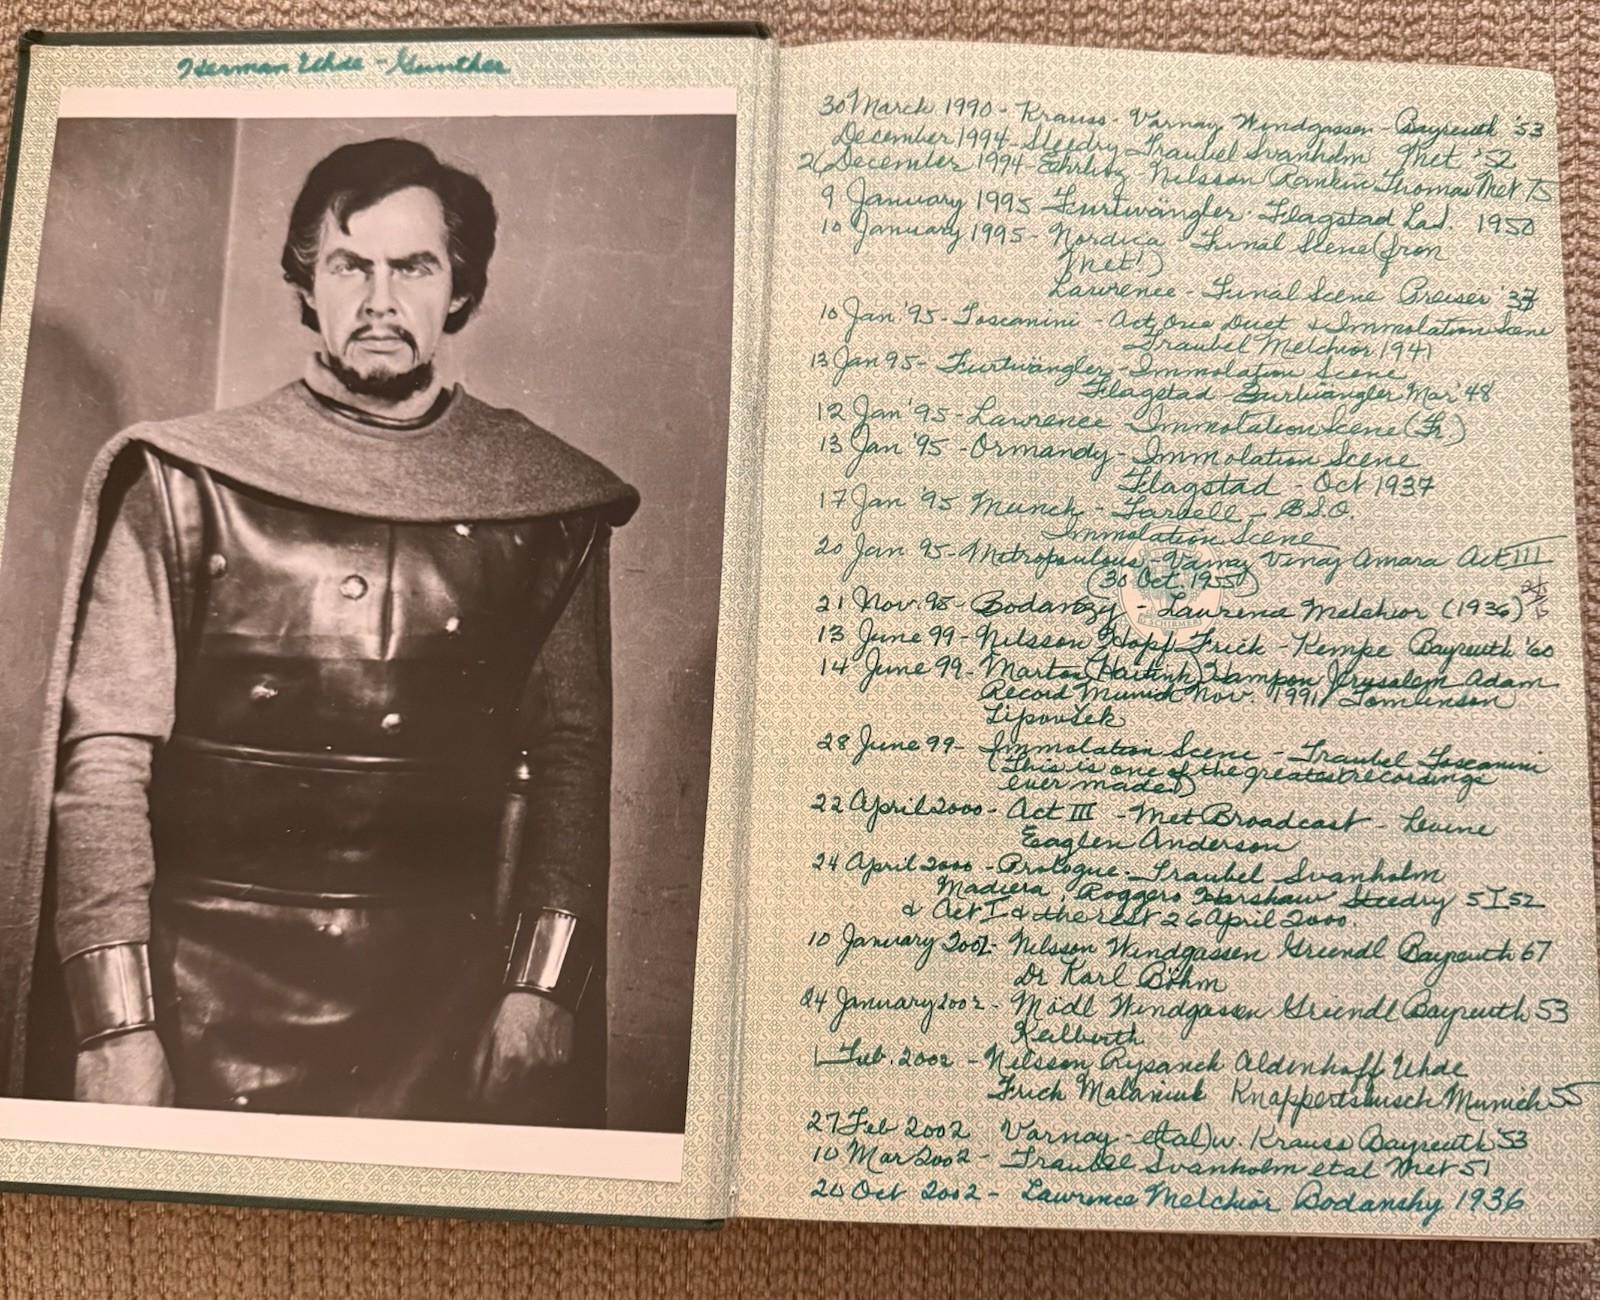 Herman Uhde - Gunther
30 March 1990 - Krauss - Varnay Windgassen - Bayreuth '53
December 1994 - Stiedry Traubel Svanholm Met '52
26 December 1994 - Ehrling - Nilsson Rankin Thomas Met 75
9 January 1995 Furtwängler - Flagstad Lad. 1950
10 January 1995 - Nordica Final Scene (from
Met!)
Lawrence - Final Scene Preiser '37
10 Jan '95 - Toscanini - Act One Duet & Immolation Scene
Traubel Melchior 1941
13 Jan 95 - Furtwängler - Immolation Scene
Flagstad Furtwängler Mar '48
12 Jan '95 - Lawrence Immolation Scene (Fr)
13 Jan '95 - Ormandy - Immolation Scene
Flagstad - Oct 1937
17 Jan '95 Munch - Farrell - B.S.O.
Immolation Scene
20 Jan 95 - Mitropoulous - Varnay Vinay Amara Act III
(30 Oct. 1955)
21 Nov. 98 - Bodanzy - Lawrence Melchior (1936)
G SCHIRMER
13 June 99 - Nilsson Hopf Frick - Kempe Bayreuth '60
14 June 99 - Marton (Haitink) Hampson Jerusalem Adam
Record Munich Nov. 1991 Tomlinson
Lipovšek
28 June 99 - Immolation Scene - Traubel Toscanini
(This is one of the greatest recordings
ever made!)
22 April 2000 - Act III - Met Broadcast - Levine
Eaglen Anderson
24 April 2000 - Prologue - Traubel Svanholm
Madiera, Roggero Harshaw Stiedry 5 I 52
& Act I & the rest 26 April 2000.
10 January 2002 - Nilsson Windgassen Griendl Bayreuth 67
Dr Karl Böhm
24 January 2002 - Mödl Windgassen Griendl Bayreuth 53
Keilberth
1 Feb. 2002 - Nilsson Rysanek Aldenhoff Uhde
Frick Malaniuk Knappertsbusch Munich 55
27 Feb 2002 Varnay - et al) w. Krauss Bayreuth '53
10 Mar 2002 - Traubel Svanholm et al Met 51
20 Oct 2002 - Lawrence Melchior Bodansky 1936